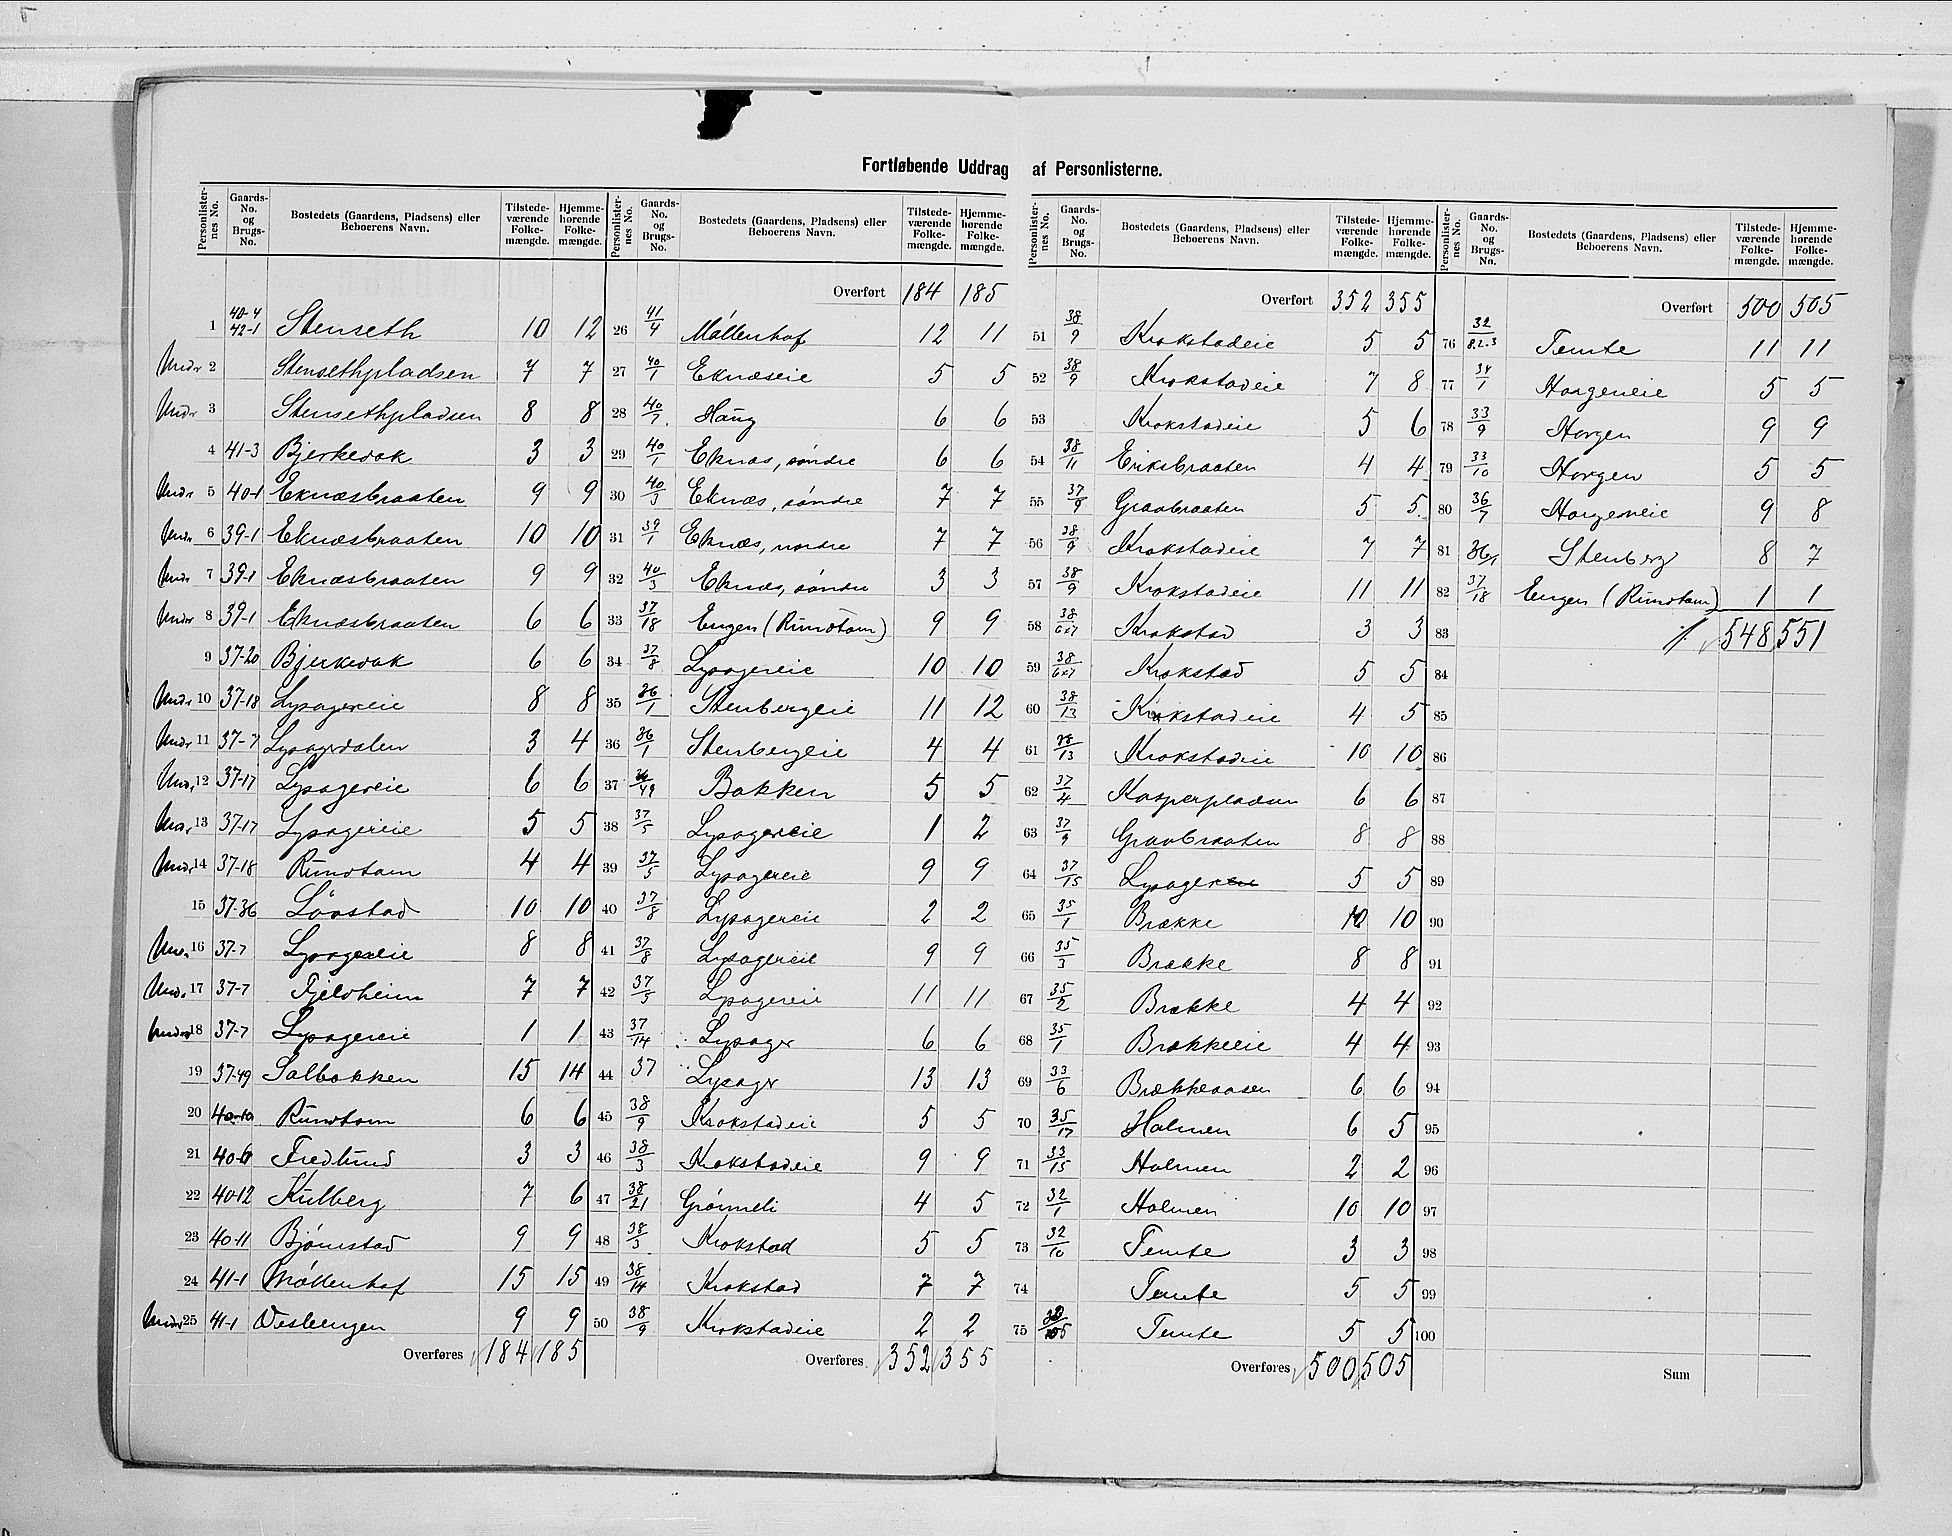 Fortløbende Uddrag af Personlisterne.
Personlisternes No. Gaards-No. og Brugs-No. Bostedets (Gaardens, Pladsens) eller Beboerens Navn. Tilstedeværende Folkemængde. Hjemmehørende Folkemængde.
1 40-4 42-1 Stenseth 10 12
Undr 2 Stensethpladsen 7 7
Undr 3 Stensethpladsen 8 8
4 41-3 Bjerkevak 3 3
Undr 5 40-1 Eknæsbraaten 9 9
Undr 6 39-1 Eknæsbraaten 10 10
Undr 7 39-1 Eknæsbraaten 9 9
Undr 8 39-1 Eknæsbraaten 6 6
9 37-20 Bjerkevak 6 6
Undr 10 37-18 Lysagereie 8 8
Undr 11 37-7 Lysagrdalen 3 4
Undr 12 37-17 Lysagereie 6 6
Undr 13 37-17 Lysagereie 5 5
Undr 14 37-18 Rundtom 4 4
15 37-36 Løvstad 10 10
Und. 16 37-7 Lysagereie 8 8
Und. 17 37-7 Fjeldheim 7 7
Undr 18 37-7 Lysagereie 1 1
19 37-49 Solbakken 15 14
20 40-10 Rundtom 6 6
21 40-6 Fredlund 3 3
22 40-12 Kulberg 7 6
23 40-11 Bjørnstad 9 9
24 41-1 Møllenhof 15 15
Undr 25 41-1 Vesleengen 9 9
Overføres 184 185
Personlisternes No. Gaards-No. og Brugs-No. Bostedets (Gaardens, Pladsens) eller Beboerens Navn. Tilstedeværende Folkemængde. Hjemmehørende Folkemængde.
Overført 184 185
26 41/4 Møllenhof 12 11
27 40/1 Eknæseie 5 5
28 40/7 Haug 6 6
29 40/1 Eknæs, søndre 6 6
30 40/3 Eknæs, søndre 7 7
31 39/1 Eknæs, nordre 7 7
32 40/3 Eknæs, søndre 3 3
33 37/18 Engen (Rundtom) 9 9
34 37/8 Lysagereie 10 10
35 36/1 Stenbergeie 11 12
36 36/1 Stenbergeie 4 4
37 /49 Bakken 5 5
38 37/5 Lysagereie 1 2
39 37/5 Lysagereie 9 9
40 37/8 Lysagereie 2 2
41 37/8 Lysagereie 9 9
42 37/5 Lysagereie 11 11
43 37/14 Lysager 6 6
44 37 Lysager 13 13
45 38/9 Krokstadeie 5 5
46 38/3 Krokstadeie 9 9
47 38/21 Grønneli 4 5
48 38/3 Krokstad 5 5
49 38/14 Krokstad 7 7
50 38/9 Krokstadeie 2 2
Overføres 352 355
Personlisternes No. Gaards-No. og Brugs-No. Bostedets (Gaardens, Pladsens) eller Beboerens Navn. Tilstedeværende Folkemængde. Hjemmehørende Folkemængde.
Overført 352 355
51 38/9 Krokstadeie 5 5
52 38/9 Krokstadeie 7 8
53 Krokstadeie 5 6
54 38/11 Eriksbraaten 4 4
55 37/9 Gravbraaten 5 5
56 38/9 Krokstadeie 7 7
57 38/9 Krokstadeie 11 11
58 38/6&7 Krokstad 3 3
59 38/6&7 Krokstad 5 5
60 38/13 Krokstadeie 4 5
61 38/13 Krokstadeie 10 10
62 37/4 Kasperpladsen 6 6
63 37/9 Gravbraaten 8 8
64 37/15 Lysagereie 5 5
65 35/1 Brække 10 10
66 35/3 Brække 8 8
67 35/2 Brække 4 4
68 35/1 Brækkeeie 4 4
69 33/6 Brækkeaasen 6 6
70 35/17 Holmen 6 5
71 33/15 Holmen 2 2
72 32/1 Holmen 10 10
73 32/10 Temte 3 3
74 Temte 5 5
75 Temte 5 5
Overføres 500 505
Personlisternes No. Gaards-No. og Brugs-No. Bostedets (Gaardens, Pladsens) eller Beboerens Navn. Tilstedeværende Folkemængde. Hjemmehørende Folkemængde.
Overført 500 505
76 32/8.2.3 Temte 11 11
77 34/1 Horgeneie 5 5
78 33/9 Horgen 9 9
79 33/10 Horgen 5 5
80 36/7 Horgeneie 9 8
81 36/1 Stenberg 8 7
82 37/18 Engen (Rundtom) 1 1
83 548 551
84
85
86
87
88
89
90
91
92
93
94
95
96
97
98
99
100
Sum